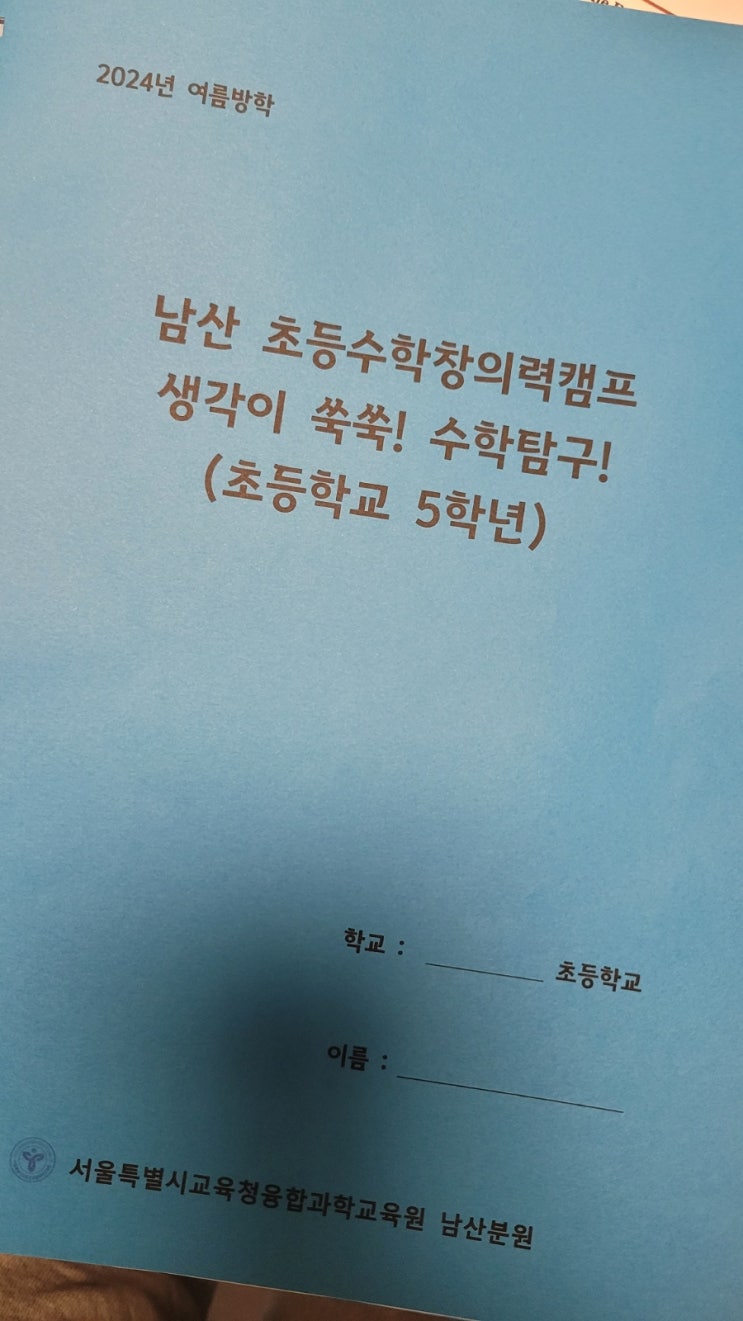 2024년 여름방학
남산 초등수학창의력캠프
생각이 쑥쑥! 수학탐구!
(초등학교 5학년)
학교 : ________ 초등학교
이름 : ________________
서울특별시교육청융합과학교육원 남산분원